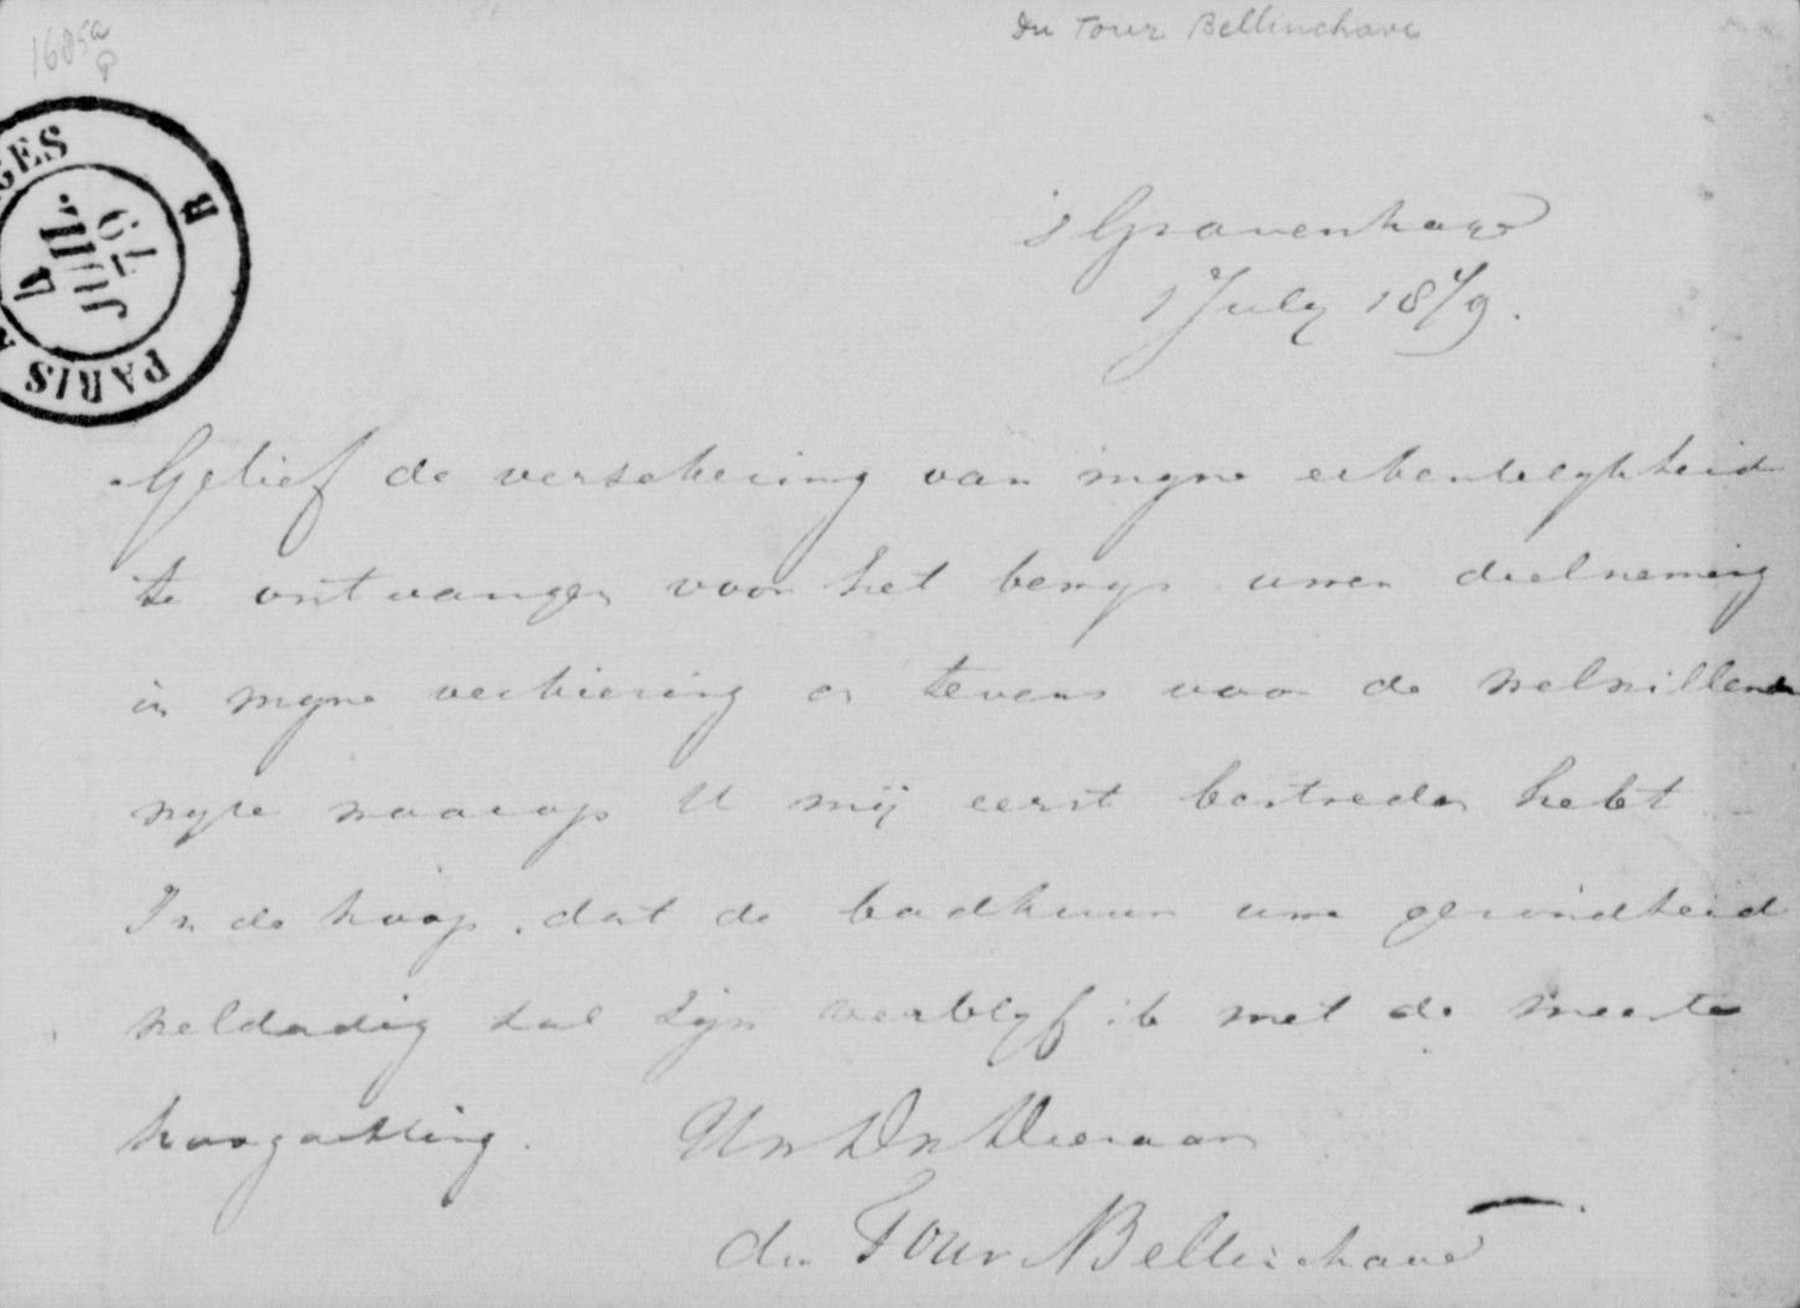 1605a
Du Tour Bellinchave
GES
B
79
JUIL.
PARIS
's Gravenhage
1 July 1879.
Gelief de verzekering van myne erkentelykheid
te ontvangen voor het bewys uwer deelneming
in myne verkiezing en tevens voor de welwillende
wyze waarop U mij eerst bestreden hebt
In de hoop, dat de badkuur uwe gezondheid
weldadig zal zyn verblyf ik met de meeste
hoogachting. Uw Dw Dienaar
du Tour v Bellinchave